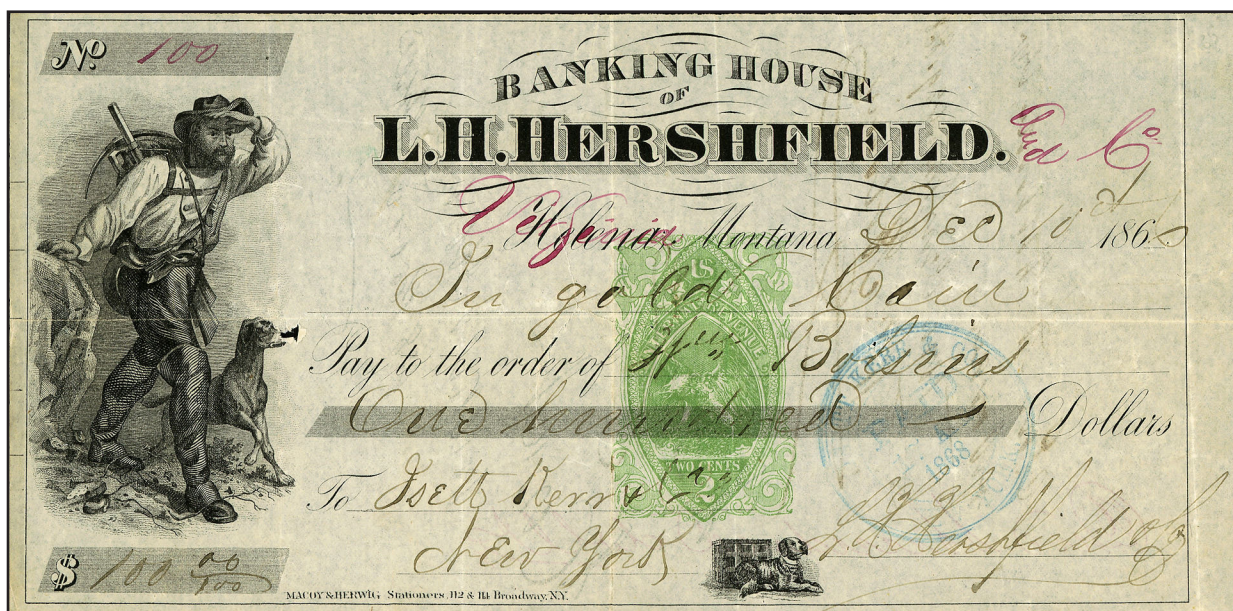 No. 100
BANKING HOUSE
OF
L.H. HERSHFIELD. And Co.
Virginia Helena, Montana Dec 10th 186
In gold Coin
Pay to the order of Wm
One hundred Dollars
To Isett Kerr & Co.
New York
L.H. Hershfield & Co
$ 100 00/100
MACOY & HERWIG, Stationers, 112 & 114 Broadway, N.Y.
US
TWO CENTS
2
& CO
1868